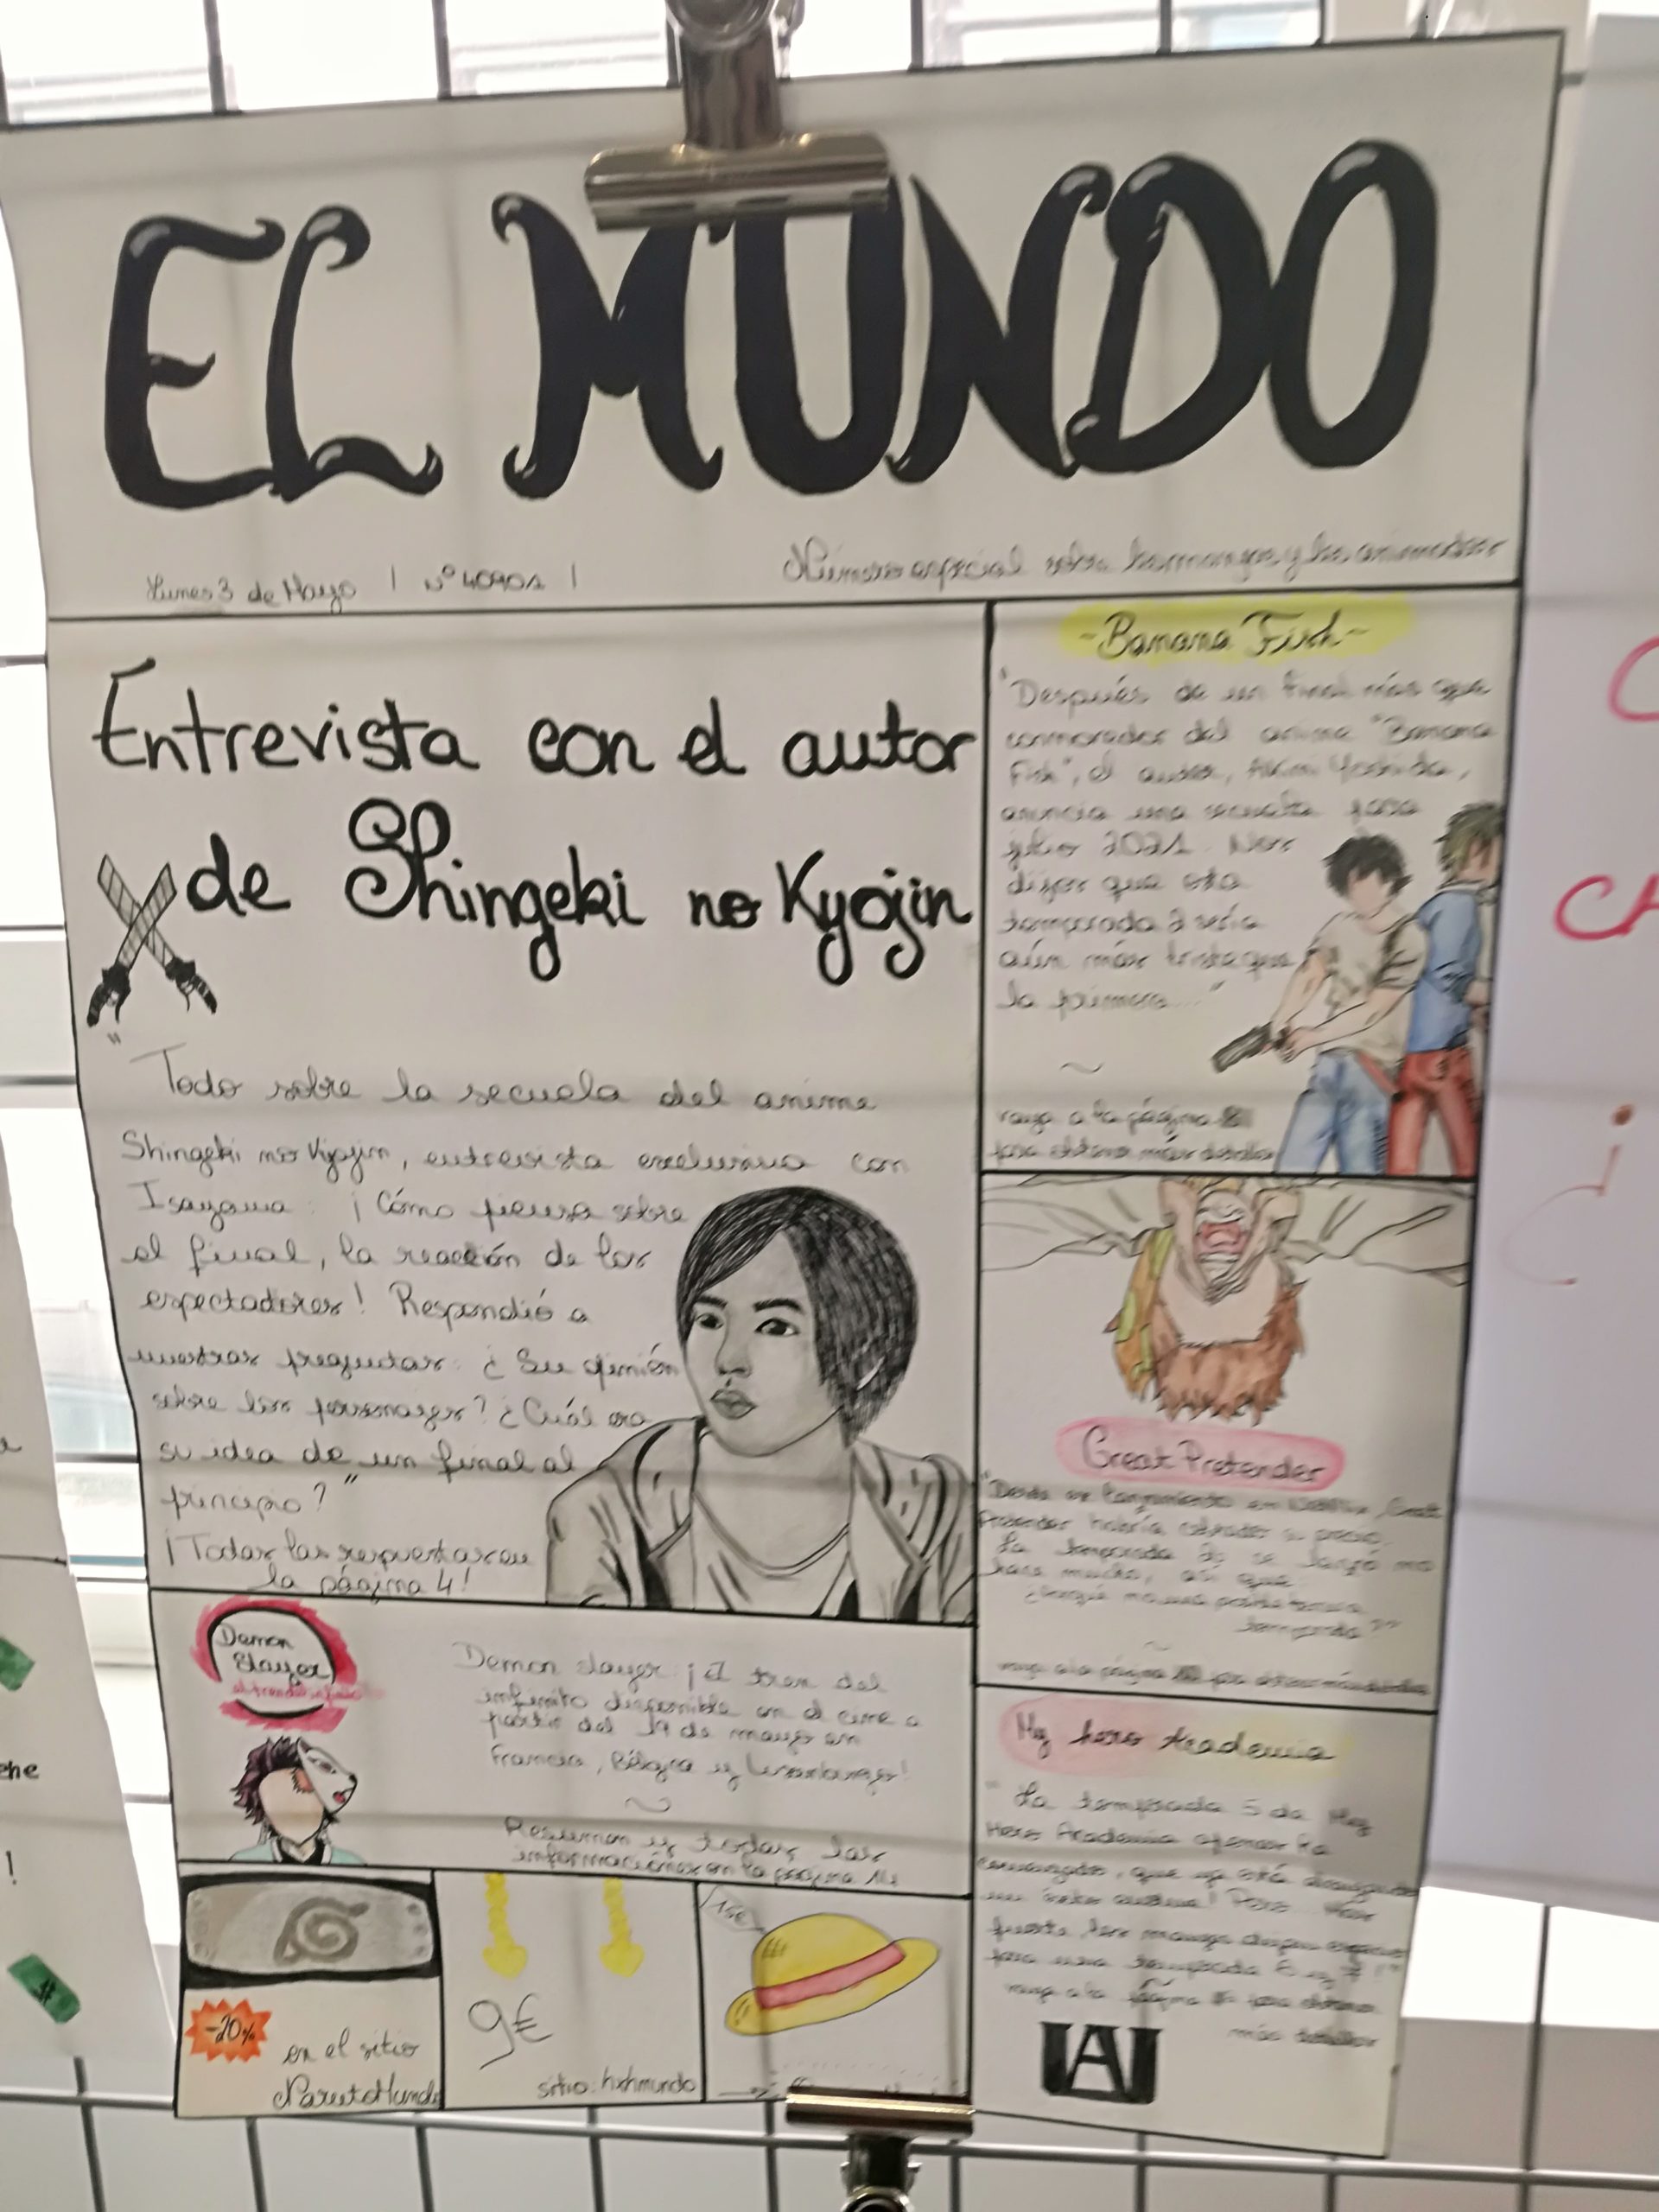 EL MUNDO
Lunes 3 de Mayo | N° 40901 |
Número especial sobre
Entrevista con el autor
de Shingeki no Kyojin
"
Todo sobre la secuela del anime
Shingeki no Kyojin, entrevista exclusiva con
Isayama : ¡Cómo piensa sobre
el final, la reacción de los
espectadores! Respondió a
nuestras preguntas : ¿Su opinión
sobre los personajes? ¿Cuál era
su idea de un final al
principio?"
¡Todas las respuestas en
la página 4!
~Banana Fish~
"Después de un final más que
del anime "Banana
Fish", el autor, Akimi Yoshida,
anuncia una secuela para
julio 2021. Nos
dijo que esta
temporada 2 sería
aún más triste que
la primera..."
~
vaya a la página
para obtener más detalles
Great Pretender
"Desde su lanzamiento en Netflix, Great
Pretender habría
La temporada se lanzó no
hace mucho, así que
temporada?"
~
vaya a la página para obtener más detalles
Demon
Slayer
el tren del infinito
Demon slayer : ¡El tren del
infinito disponible en el cine a
partir del 19 de mayo en
Francia, Bélgica y
~
Resumen y todas las
informaciones en la página
My hero Academia
"La temporada 5 de My
Hero Academia apenas ha
comenzado, que ya está
un
para una temporada 6 y 7!"
vaya a la página para obtener
más detalles
UA
-20%
en el sitio
9€
sitio: hxhmundo
15€